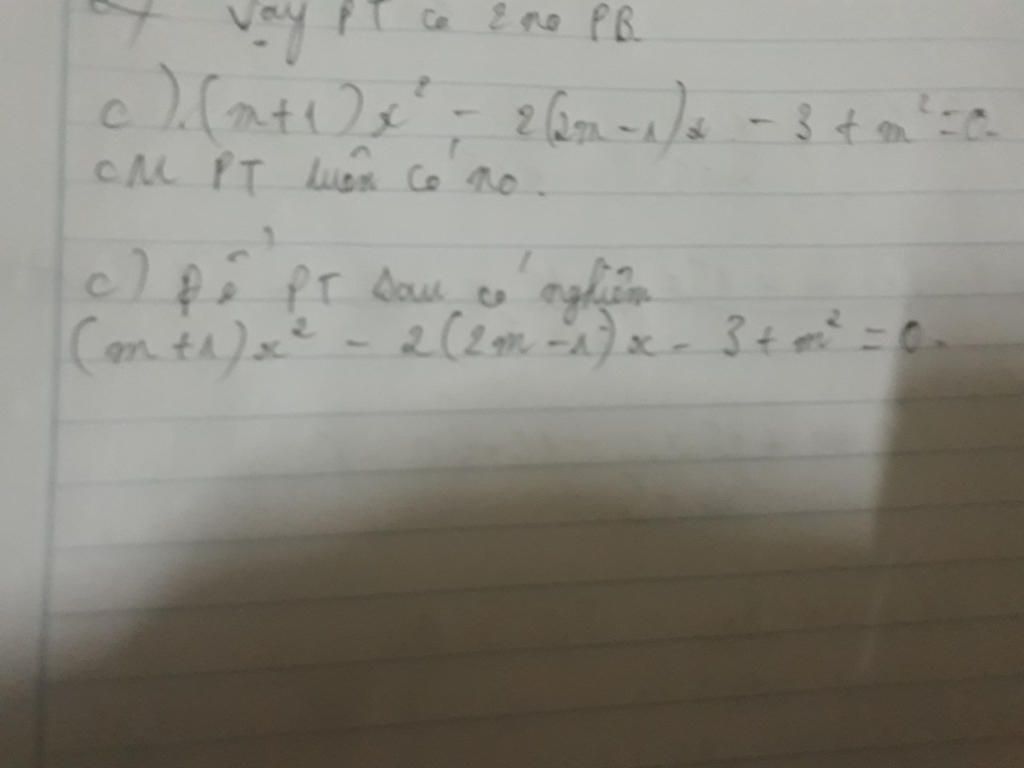 Vậy PT có 2 no PB
c) (m+1)x² - 2(2m-1)x - 3 + m² = 0.
CM PT luôn có no.
c) Để PT sau có nghiệm
(m+1)x² - 2(2m-1)x - 3 + m² = 0.